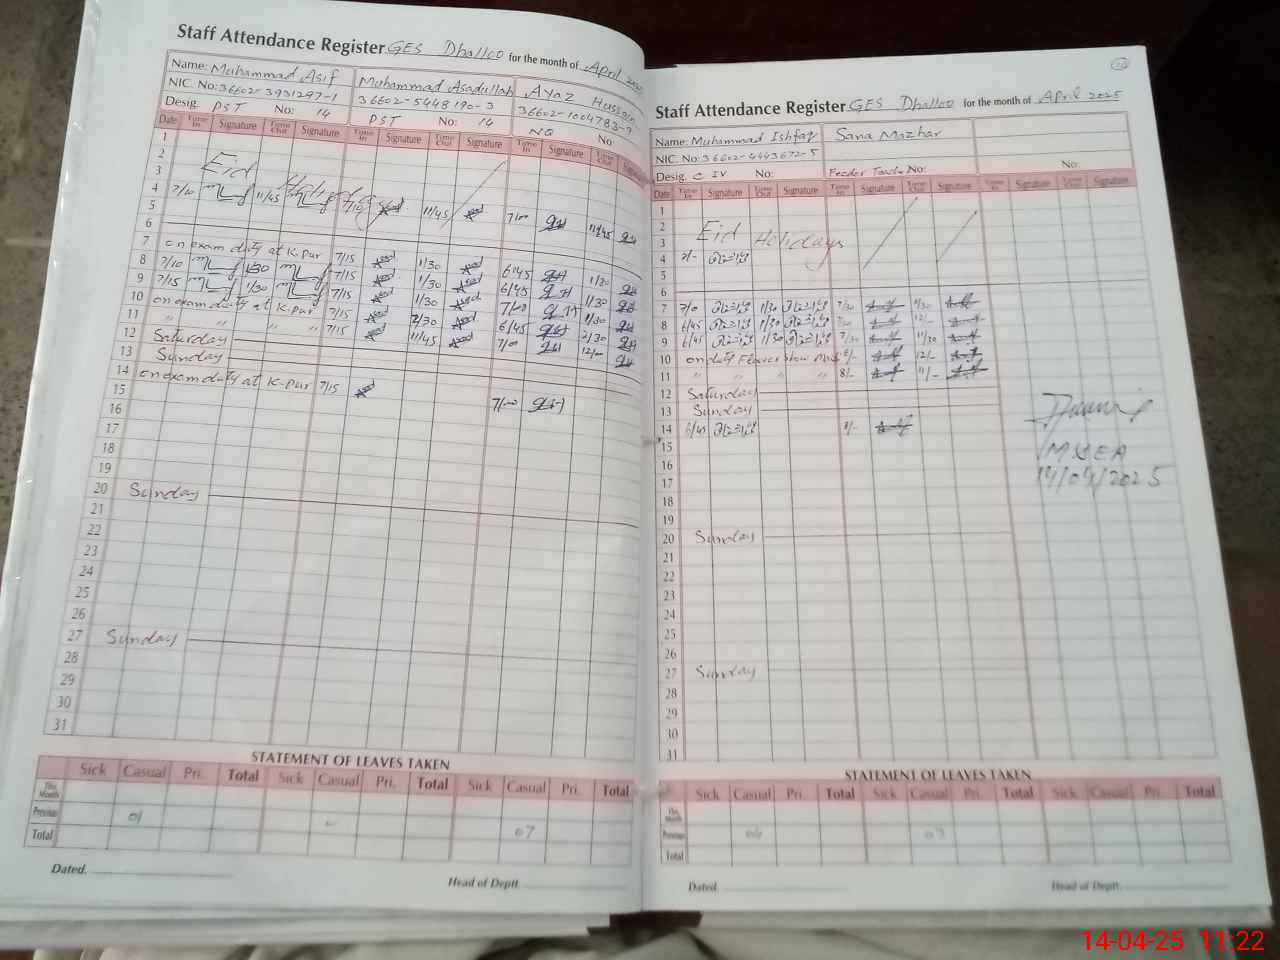 Staff Attendance Register GES Dhalloo for the month of April 2025
Name: Muhammad Asif Muhammad Asadullah Ayaz Hussain
NIC. No: 36602-3931297-1 36602-5448190-3 36602-1004783-9
Desig. PST No: 14 PST No: 14 NQ No:
Date Time In Signature Time Out Signature Time In Signature Time Out Signature Time In Signature Time Out Signature
1
2
3 Eid Holidays
4
5 7/10 11/45 7/10 11/45 7/00 11/45
6
7 on exam duty at K.Pur 7/15 1/30 6/45 1/30
8 7/10 1/30 7/15 1/30 6/45 1/30
9 7/15 1/30 7/15 1/30 7/00 1/30
10 on exam duty at K-Pur 7/15 2/30 6/45 2/30
11 " " " " 7/15 11/45 7/00 12/00
12 Saturday
13 Sunday
14 on exam duty at K-Pur 7/15 7/00
15
16
17
18
19
20 Sunday
21
22
23
24
25
26
27 Sunday
28
29
30
31
STATEMENT OF LEAVES TAKEN
Sick Casual Pri. Total Sick Casual Pri. Total Sick Casual Pri. Total
This Month
Previous 01 07
Total
Dated. Head of Deptt.
Staff Attendance Register GES Dhalloo for the month of April 2025
Name: Muhammad Ishfaq Sana Mazhar
NIC. No: 36602-4443672-5
Desig. C IV No: Feeder Teacher No: No:
Date Time In Signature Time Out Signature Time In Signature Time Out Signature Time In Signature Time Out Signature
1
2 Eid Holidays
3
4 7/-
5
6
7 7/0 1/30 7/30 11/30
8 6/45 1/30 7/30 12/-
9 6/45 1/30 7/30 11/30
10 on duty Flower Show 8/- 12/-
11 " " " " 8/- 11/-
12 Saturday
13 Sunday
14 6/45 8/-
15
16
17
18
19
20 Sunday
21
22
23
24
25
26
27 Sunday
28
29
30
31
MEA
14/04/2025
STATEMENT OF LEAVES TAKEN
Sick Casual Pri. Total Sick Casual Pri. Total Sick Casual Pri. Total
This Month
Previous 04 03
Total
Dated. Head of Deptt.
14-04-25 11:22